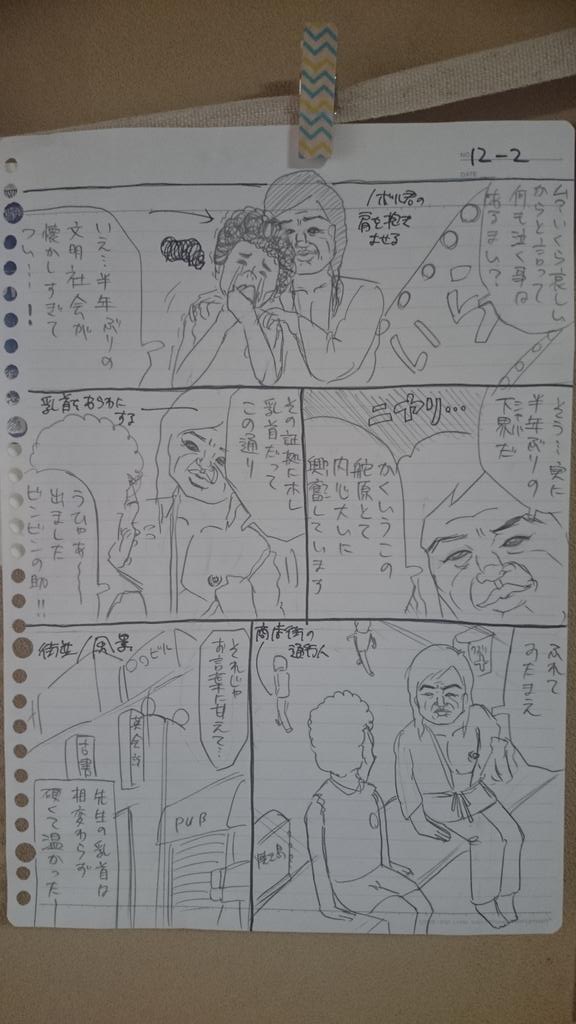 NO. 12-2
DATE
いくら哀しい
からと言って
何も泣く事は
あるまい?
ノボル君の
肩を抱て
ませる
いえ…半年ぶりの
文明社会が
懐かしすぎて
つい…!
そう…実に
半年ぶりの
下界だ
シャバ
ニヤリ…
かくいうこの
舵原とて
内心大いに
興奮しています
その証拠にホレ
乳首だって
この通り
乳首をあらわに
する
うひゃあ〜
出ました
ビンビンの助!!
ふれて
みたまえ
商店街の
通行人
それじゃ
お言葉に甘えて…
街並/風景
〇〇ビル
英会話
古書
PUB
先生の乳首は
相変わらず
硬くて温かった